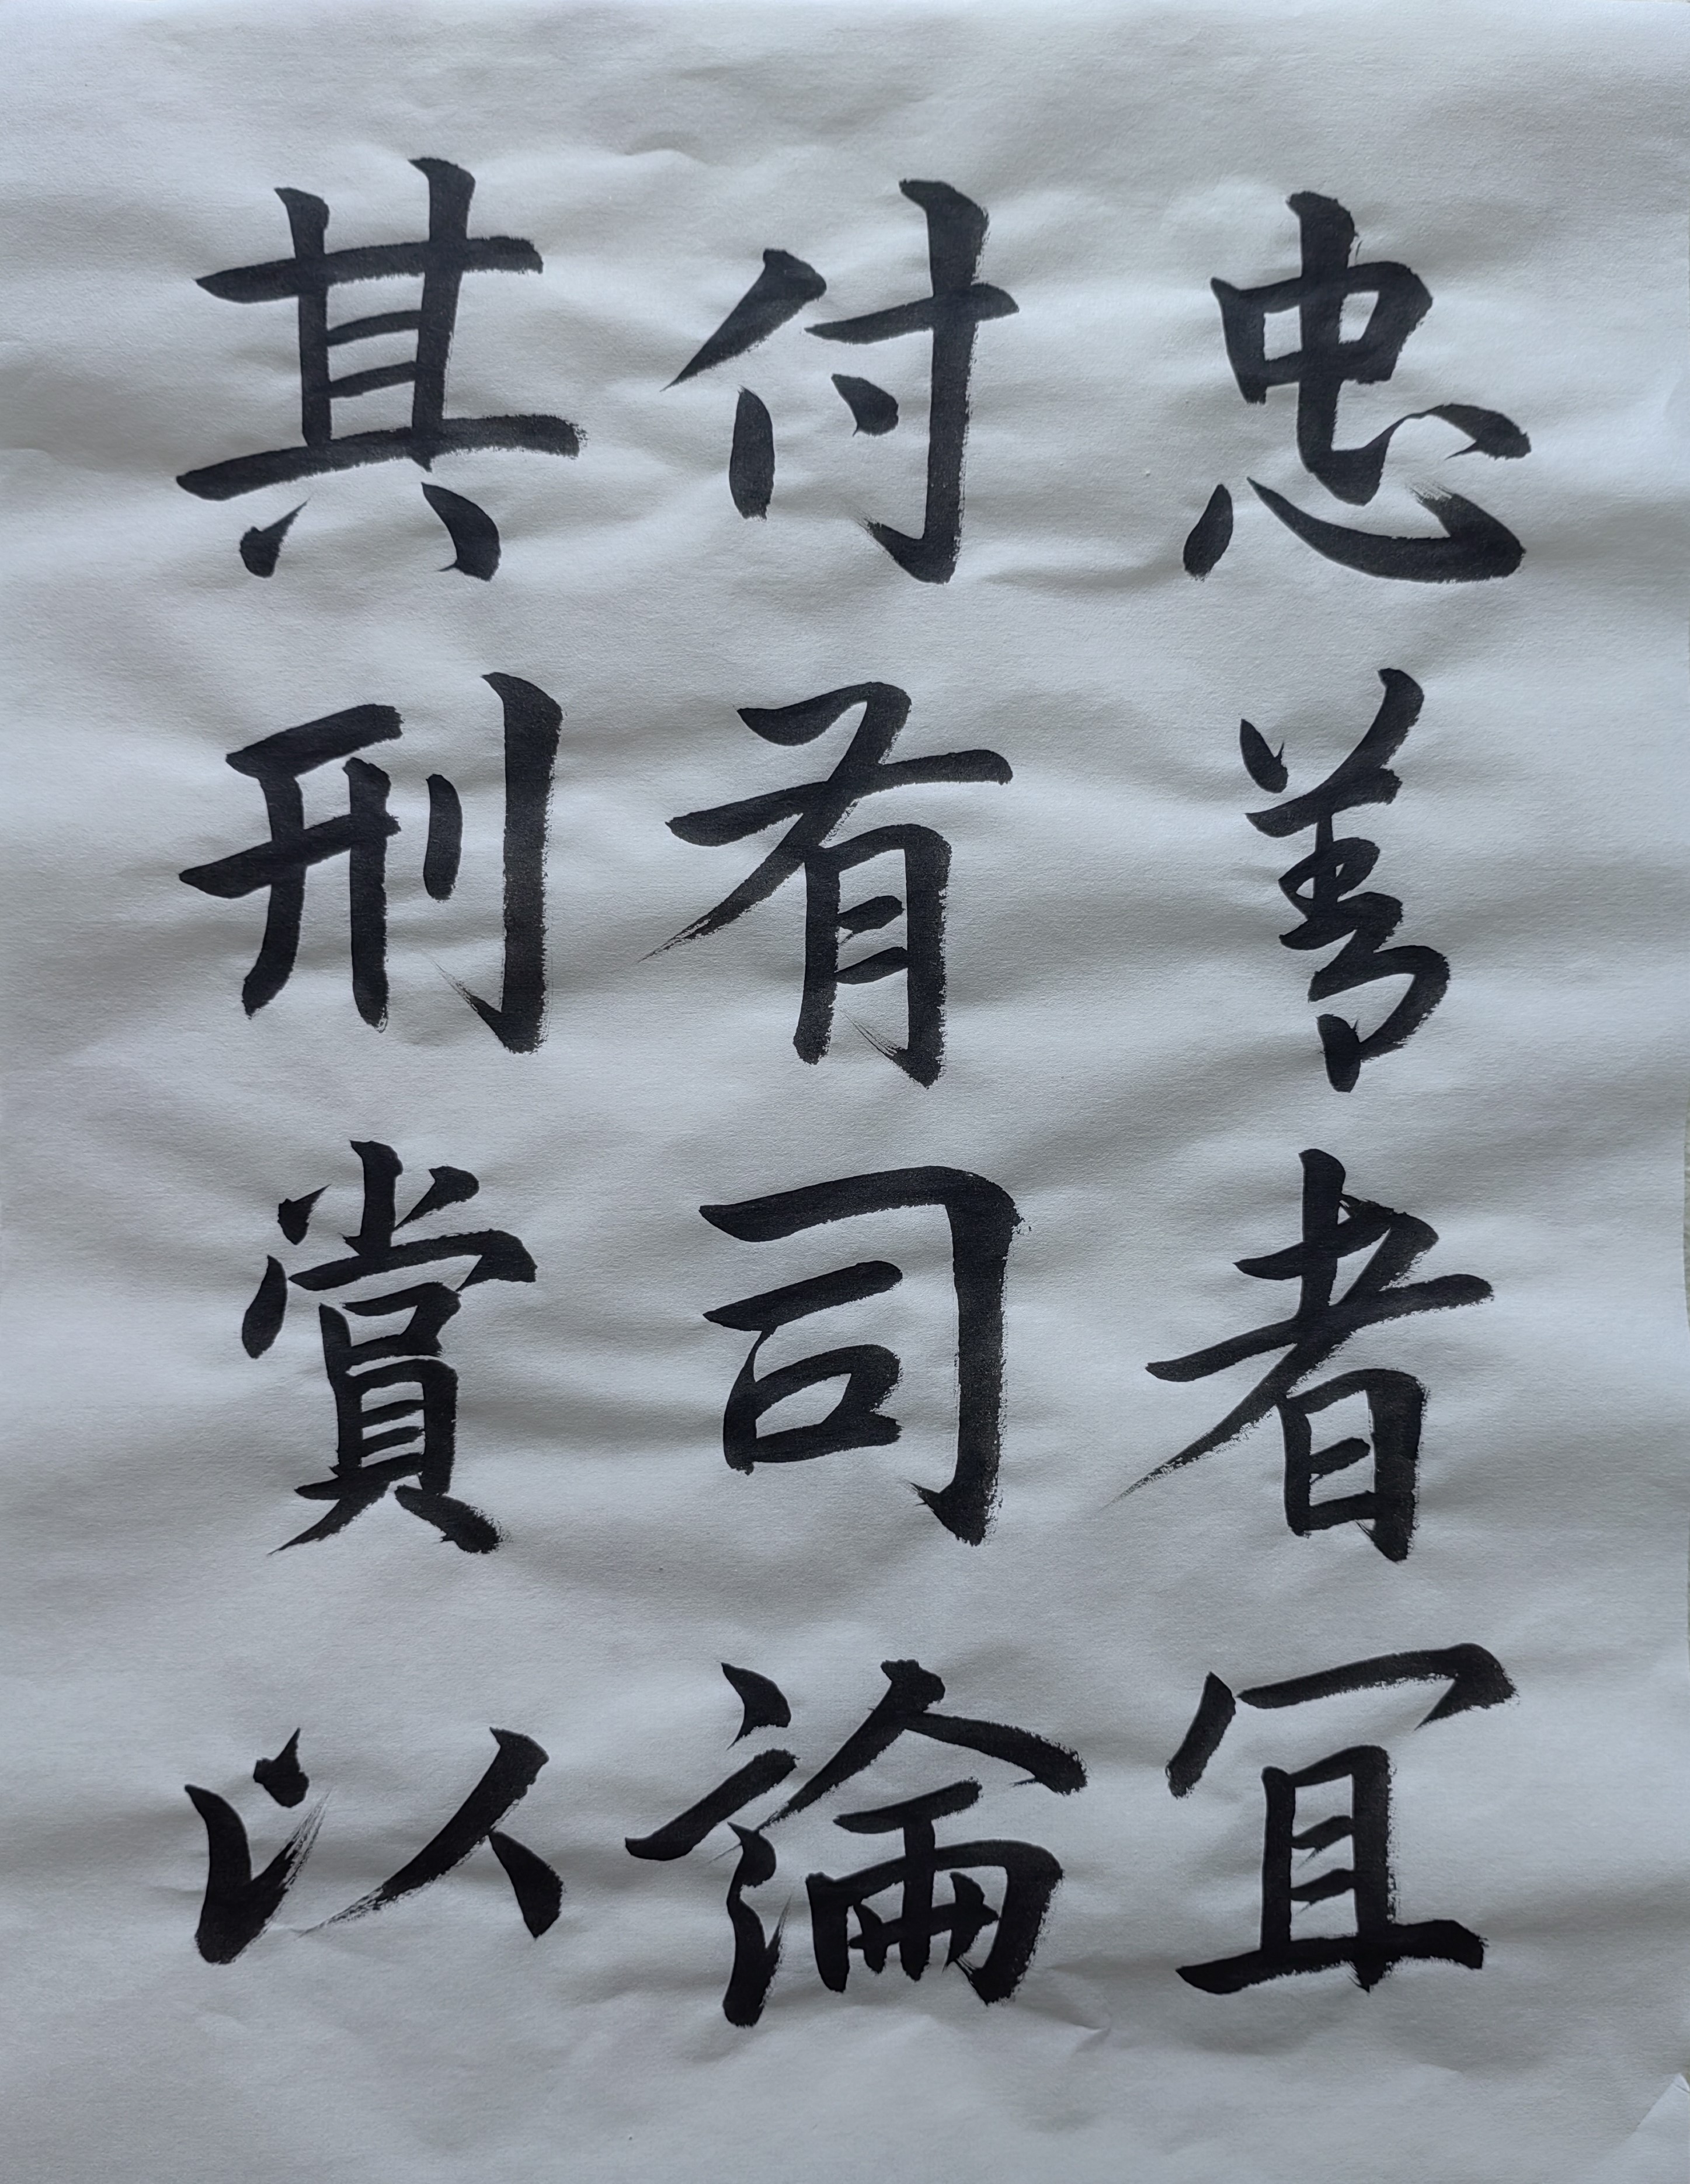 忠善者冝
付有司論
其刑賞以